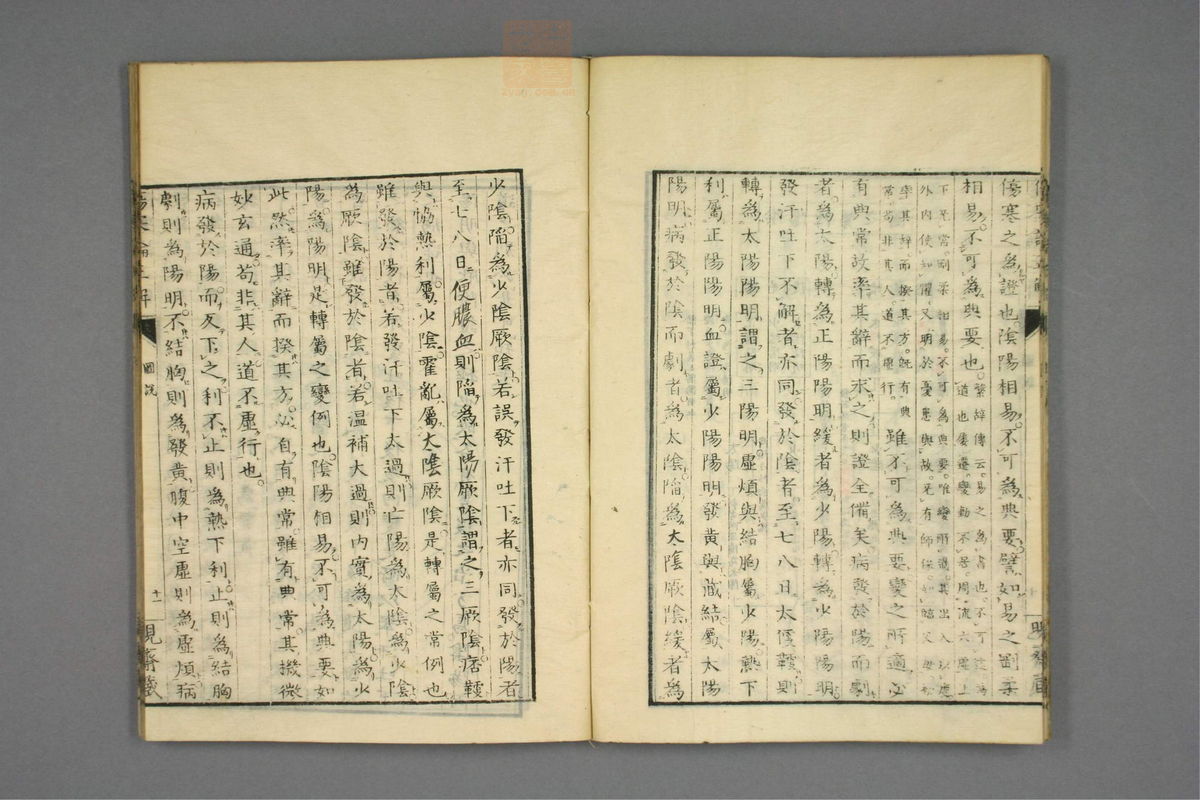 傷寒之為證也陰陽相易不可為典要譬如易之剛柔
相易不可為典要也繫辭傳云易之為書也不可遠為道也屢遷變動不居周流六虛上
下无常剛柔相易不可為典要唯變所適其出入以度
外內使知懼又明於憂患與故无有師保如臨父母初
率其辭而揆其方既有典常苟非其人道不虛行雖不可為典要變之所適必
有典常故率其辭而求之則證全備矣病發於陽而劇
者為太陽轉為正陽陽明緩者為少陽轉為少陽陽明
發汗吐下不解者亦同發於陰者至七八日大便鞕則
轉為太陽陽明謂之三陽陽明虛煩與結胸屬少陽熱下
利屬正陽陽明血證屬少陽陽明發黃與藏結屬太陽
陽明病發於陰而劇者為太陰陷為大陰厥陰緩者為
少陰陷為少陰厥陰若誤發汗吐下者亦同發於陽者
至七八日便膿血則陷為太陽厥陰謂之三厥陰痞鞕
與協熱利屬少陰霍亂屬大陰厥陰是轉屬之常例也
雖發於陽者若發汗吐下太過則亡陽為太陰為少陰
為厥陰雖發於陰者若溫補大過則內實為太陽為少
陽為陽明是轉屬之變例也陰陽相易不可為典要如
此然率其辭而揆其方必自有典常雖有典常其機微
妙玄通苟非其人道不虛行也
病發於陽而反下之利不止則為熱下利止則為結胸
劇則為陽明不結胸則為發黃腹中空虛則為虛煩病
圖說
十一